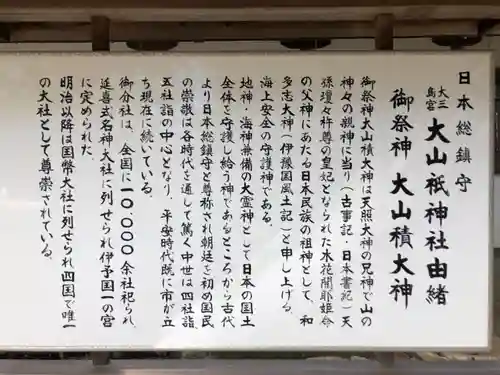 日本総鎮守
大三島宮
大山祇神社由緒
御祭神 大山積大神
御祭神大山積大神は天照大神の兄神で山の
神々の親神に当り(古事記・日本書記)天
孫瓊々杵尊の皇妃となられた木花開耶姫命
の父神にあたる日本民族の祖神として、和
多志大神(伊豫国風土記)と申し上げる。
海上安全の守護神である。
地神・海神兼備の大霊神として日本の国土
全体を守護し給う神であるところから古代
より日本総鎮守と尊称され朝廷を初め国民
の崇敬は各時代を通して篤く中世は四社詣、
五社詣の中心となり、平安時代既に市が立
ち現在に続いている。
御分社は、全国に一〇、〇〇〇余社祀られ、
延喜式名神大社に列せられ伊予国一の宮
に定められた。
明治以降は国幣大社に列せられ四国で唯一
の大社として尊崇されている。